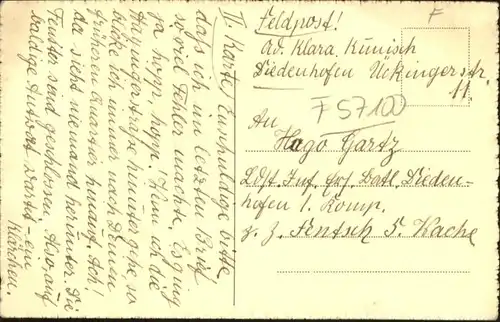 II. Karte, Entschuldige bitte
dass ich im letzten Brief
so viel Fehler machte, Es ging
ja hopp, hopp! Wenn ich die
Hayingerstraße hinunter gehe so
blicke ich immer nach Deinem
früheren Quartier hinauf. Ach!
da sieht niemand herunter. Die
Fenster sind geschlossen. Also auf
baldige Antwort wartet ein
Klärchen.
Feldpost!
F
Ad. Klara Kunisch
Diedenhofen Ückingerstr.
11.
F 57100
An
Hugo Gartz
Ldst. Inf. Batl. Dieden-
hofen 1. Komp.
z. Z. Fentsch